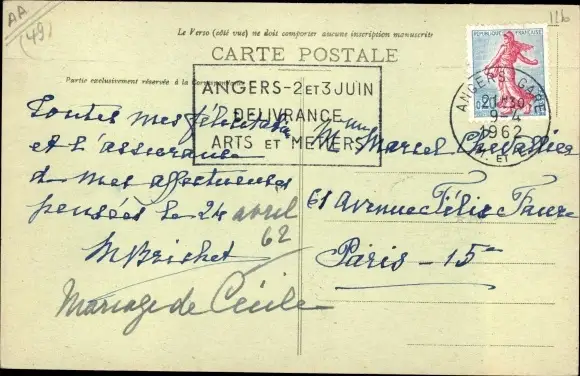 AA
(49)
Le Verso (côté vue) ne doit comporter aucune inscription manuscrite
CARTE POSTALE
Partie exclusivement réservée à la Correspondance
REPUBLIQUE FRANÇAISE
ANGERS-2 ET 3 JUIN
DELIVRANCE
ARTS ET METIERS
ANGERS GARE
21H30
9-4
1962
M. ET L.
Toutes mes félicitations
et l'assurance
de mes affectueuses
pensées le 24 avril
62
M Brichet
Mariage de Cécile
Mme Marcel Chevallier
61 Avenue Félix Faure
Paris - 15e